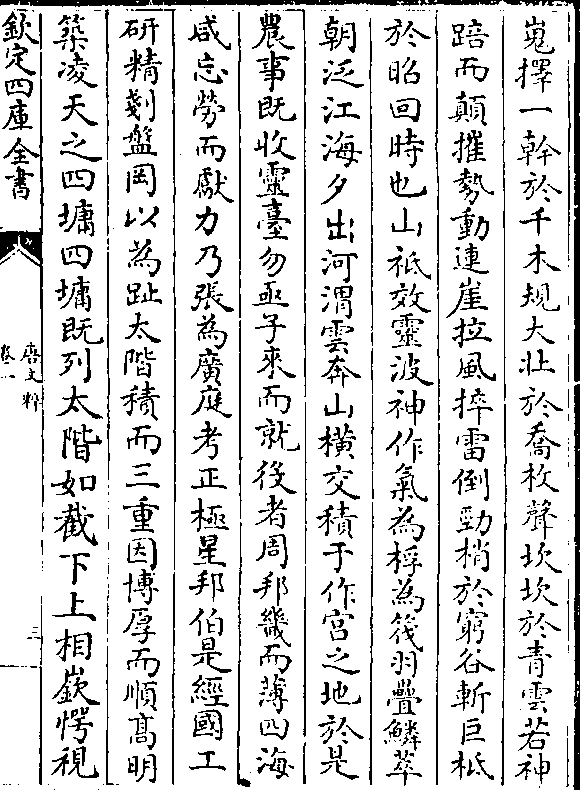 嵬擇一幹於千木規大壯於喬枚聲坎坎於青雲若神
踣而顛摧勢動連崖拉風捽雷倒勁梢於窮谷斬巨柢
於昭回時也山祇效靈波神作氣為桴為筏羽疊鱗萃
朝泛江海夕出河渭雲奔山橫交積于作宫之地於是
農事既收靈臺勿亟子來而就役者周邦畿而薄四海
咸忘勞而獻力乃張為廣庭考正極星邦伯是經國工
研精剗盤岡以為趾太階積而三重因博厚而順髙明
築凌天之四墉四墉既列太階如截下上相嶔愕視
欽定四庫全書
唐文粹
卷一
三